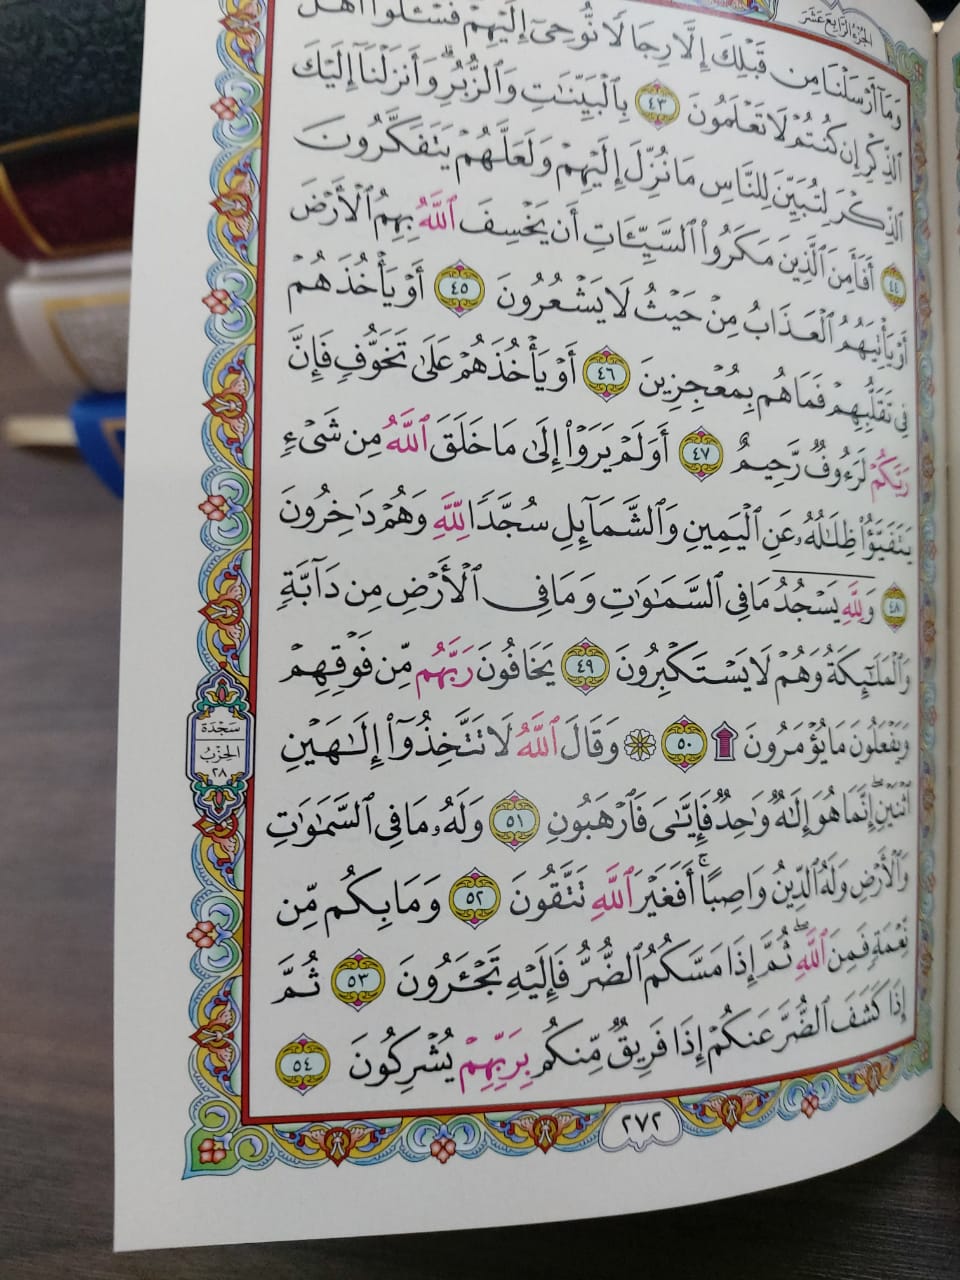 الجزء الرابع عشر
وَمَآ أَرْسَلْنَا مِن قَبْلِكَ إِلَّا رِجَالًا نُّوحِىٓ إِلَيْهِمْ فَسْـَٔلُوٓا۟ أَهْلَ
ٱلذِّكْرِ إِن كُنتُمْ لَا تَعْلَمُونَ ٤٣ بِٱلْبَيِّنَـٰتِ وَٱلزُّبُرِ ۗ وَأَنزَلْنَآ إِلَيْكَ
ٱلذِّكْرَ لِتُبَيِّنَ لِلنَّاسِ مَا نُزِّلَ إِلَيْهِمْ وَلَعَلَّهُمْ يَتَفَكَّرُونَ
٤٤ أَفَأَمِنَ ٱلَّذِينَ مَكَرُوا۟ ٱلسَّيِّـَٔاتِ أَن يَخْسِفَ ٱللَّهُ بِهِمُ ٱلْأَرْضَ
أَوْ يَأْتِيَهُمُ ٱلْعَذَابُ مِنْ حَيْثُ لَا يَشْعُرُونَ ٤٥ أَوْ يَأْخُذَهُمْ
فِى تَقَلُّبِهِمْ فَمَا هُم بِمُعْجِزِينَ ٤٦ أَوْ يَأْخُذَهُمْ عَلَىٰ تَخَوُّفٍ فَإِنَّ
رَبَّكُمْ لَرَءُوفٌ رَّحِيمٌ ٤٧ أَوَلَمْ يَرَوْا۟ إِلَىٰ مَا خَلَقَ ٱللَّهُ مِن شَىْءٍ
يَتَفَيَّؤُا۟ ظِلَـٰلُهُۥ عَنِ ٱلْيَمِينِ وَٱلشَّمَآئِلِ سُجَّدًا لِّلَّهِ وَهُمْ دَٰخِرُونَ
٤٨ وَلِلَّهِ يَسْجُدُ مَا فِى ٱلسَّمَـٰوَٰتِ وَمَا فِى ٱلْأَرْضِ مِن دَآبَّةٍ
وَٱلْمَلَـٰٓئِكَةُ وَهُمْ لَا يَسْتَكْبِرُونَ ٤٩ يَخَافُونَ رَبَّهُم مِّن فَوْقِهِمْ
وَيَفْعَلُونَ مَا يُؤْمَرُونَ ۩ ٥٠ ۞ وَقَالَ ٱللَّهُ لَا تَتَّخِذُوٓا۟ إِلَـٰهَيْنِ
ٱثْنَيْنِ ۖ إِنَّمَا هُوَ إِلَـٰهٌ وَٰحِدٌ فَإِيَّـٰىَ فَٱرْهَبُونِ ٥١ وَلَهُۥ مَا فِى ٱلسَّمَـٰوَٰتِ
وَٱلْأَرْضِ وَلَهُ ٱلدِّينُ وَاصِبًا ۚ أَفَغَيْرَ ٱللَّهِ تَتَّقُونَ ٥٢ وَمَا بِكُم مِّن
نِّعْمَةٍ فَمِنَ ٱللَّهِ ۖ ثُمَّ إِذَا مَسَّكُمُ ٱلضُّرُّ فَإِلَيْهِ تَجْـَٔرُونَ ٥٣ ثُمَّ
إِذَا كَشَفَ ٱلضُّرَّ عَنكُمْ إِذَا فَرِيقٌ مِّنكُم بِرَبِّهِمْ يُشْرِكُونَ ٥٤
سجدة
الحزب
٢٨
٢٧٢